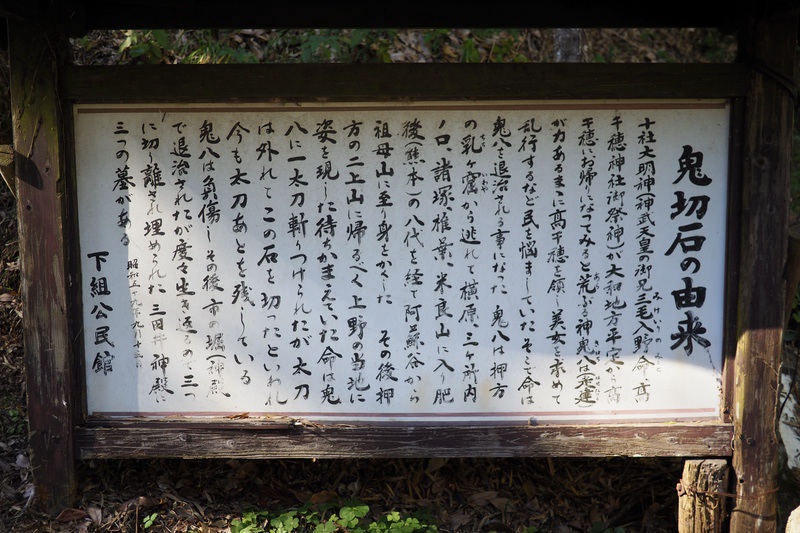 鬼切石の由来
十社大明神(神武天皇の御兄三毛入野命・高
千穂神社御祭神)が大和地方平定から高
千穂にお帰になてみると荒ぶる神鬼八(走建)
が力あるまゝに高千穂を領し美女を求めて
乱行するなど民を悩ましていたそこで命は
鬼八を退治される事になった 鬼八は押方
の乳ヶ窟から逃れて横原、三ヶ所内
ノ口、諸塚、椎葉、米良山に入り肥
後(熊本)の八代を経て阿蘇谷から
祖母山に至り身をかくした その後押
方の二上山に帰るべく上野の当地に
姿を現した待ちかまえていた命は鬼
八に一太刀斬りつけられたが太刀
は外れてこの石を切ったといわれ
今も太刀あとを残している
鬼八は負傷しその後市の堀(神殿
で退治されたが度々生き返るので三つ
に切り離され埋められた 三田井 神殿に
三つの墓がある
昭和五十九年九月
下組公民館